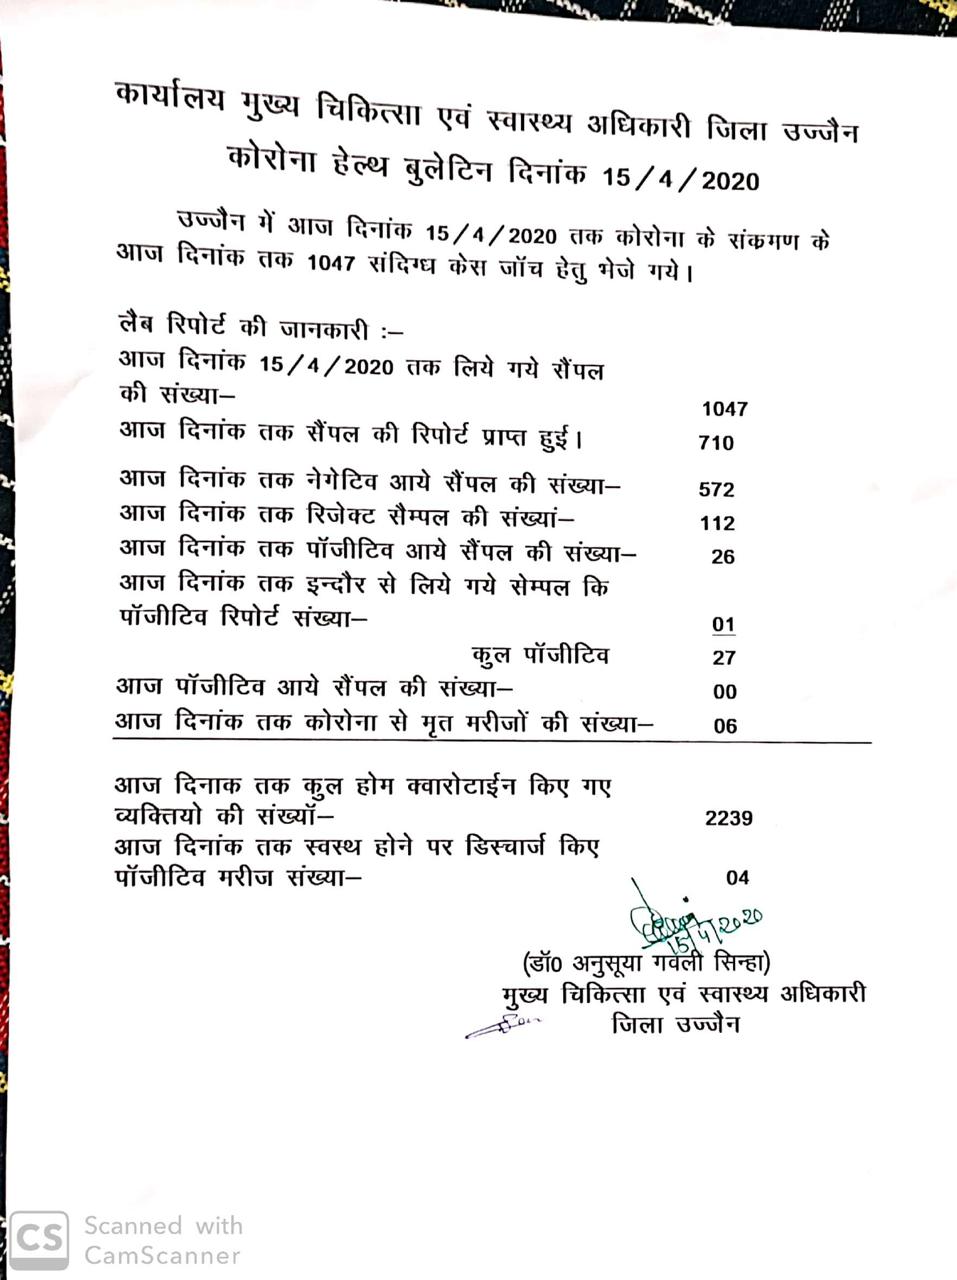 कार्यालय मुख्य चिकित्सा एवं स्वास्थ्य अधिकारी जिला उज्जैन
कोरोना हेल्थ बुलेटिन दिनांक 15/4/2020
उज्जैन में आज दिनांक 15/4/2020 तक कोरोना के संकमण के
आज दिनांक तक 1047 संदिग्ध केस जॉच हेतु भेजे गये।
लैब रिपोर्ट की जानकारी :–
आज दिनांक 15/4/2020 तक लिये गये सैंपल
की संख्या– 1047
आज दिनांक तक सैंपल की रिपोर्ट प्राप्त हुई। 710
आज दिनांक तक नेगेटिव आये सैंपल की संख्या– 572
आज दिनांक तक रिजेक्ट सैम्पल की संख्यां– 112
आज दिनांक तक पॉजीटिव आये सैंपल की संख्या– 26
आज दिनांक तक इन्दौर से लिये गये सेम्पल कि
पॉजीटिव रिपोर्ट संख्या– 01
कुल पॉजीटिव 27
आज पॉजीटिव आये सैंपल की संख्या– 00
आज दिनांक तक कोरोना से मृत मरीजों की संख्या– 06
आज दिनाक तक कुल होम क्वारोटाईन किए गए
व्यक्तियो की संख्यॉ– 2239
आज दिनांक तक स्वस्थ होने पर डिस्चार्ज किए
पॉजीटिव मरीज संख्या– 04
15/4/2020
(डॉ0 अनुसूया गवली सिन्हा)
मुख्य चिकित्सा एवं स्वास्थ्य अधिकारी
जिला उज्जैन
CS Scanned with
CamScanner